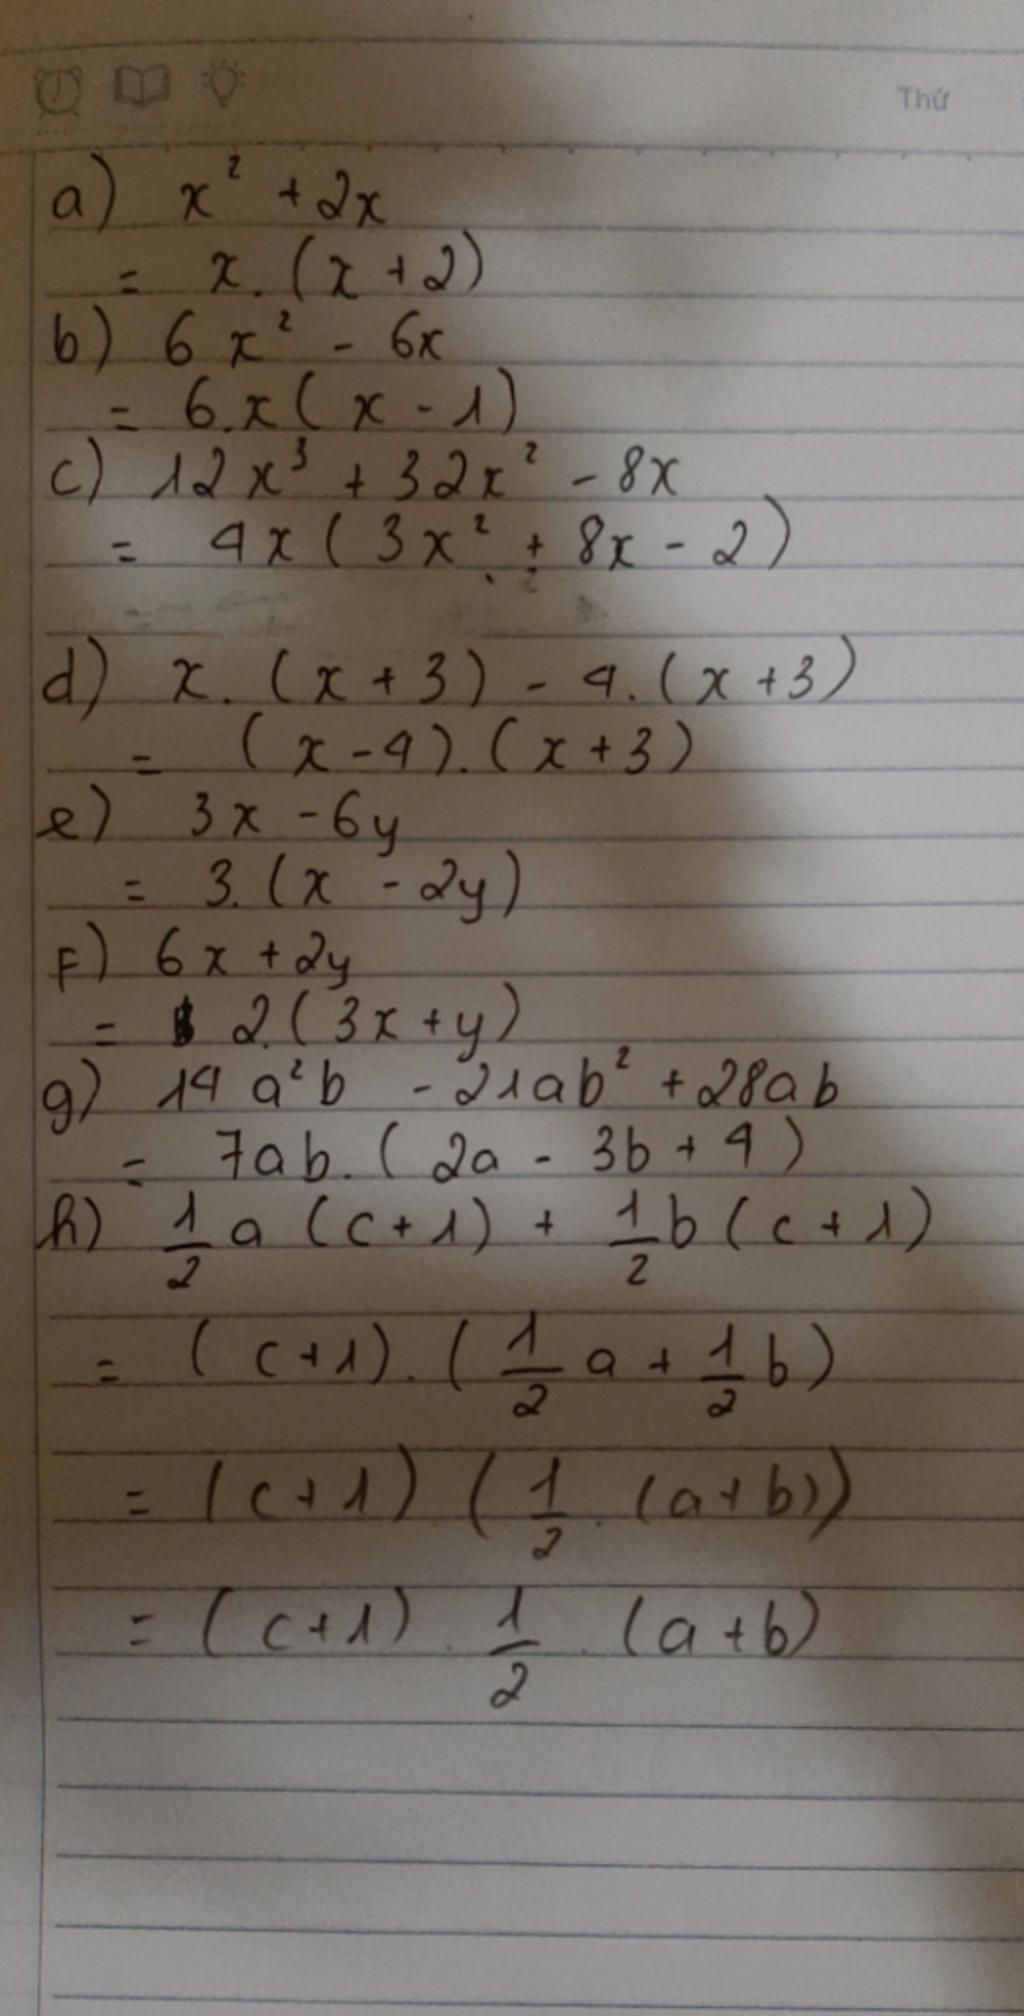 Thứ
a) x² + 2x
= x. (x + 2)
b) 6x² - 6x
= 6.x(x - 1)
c) 12x³ + 32x² - 8x
= 4x(3x² + 8x - 2)
d) x. (x + 3) - 4. (x + 3)
= (x - 4). (x + 3)
e) 3x - 6y
= 3. (x - 2y)
f) 6x + 2y
= 2. (3x + y)
g) 14a²b - 21ab² + 28ab
= 7ab. (2a - 3b + 4)
h) 1/2 a (c + 1) + 1/2 b (c + 1)
= (c + 1). (1/2 a + 1/2 b)
= (c + 1) (1/2 . (a + b))
= (c + 1) . 1/2 . (a + b)